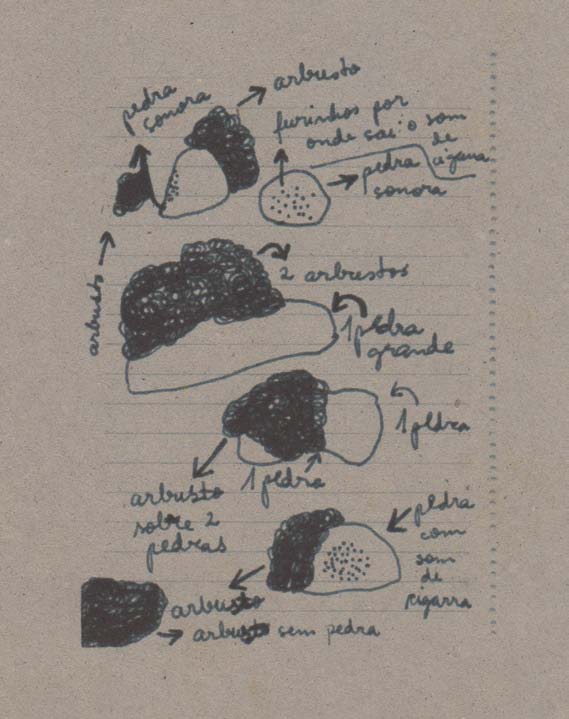 pedra
sonora
arbusto
furinhos por
onde sai o som
de
cigarra
pedra
sonora
arbusto
2 arbustos
1 pedra
grande
1 pedra
1 pedra
arbusto
sobre 2
pedras
pedra
com
som
de
cigarra
arbusto
arbusto sem pedra